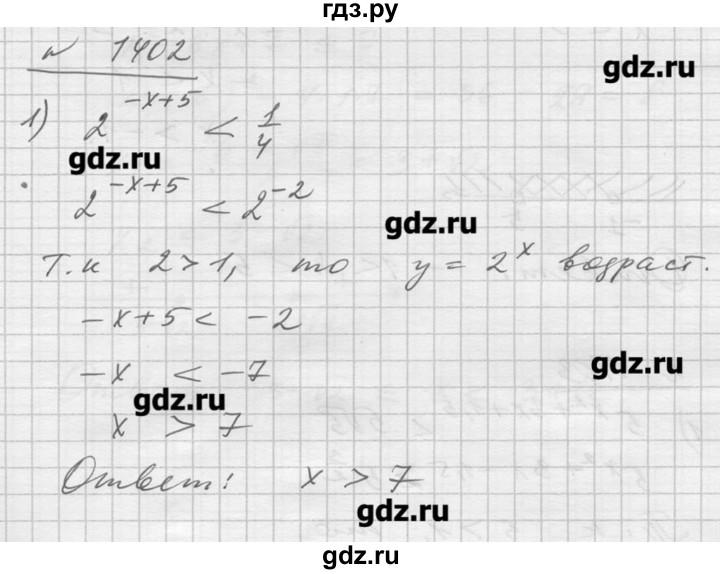 гдз.ру
№ 1402
1) 2^{-x+5} < 1/4
gdz.ru
gdz.ru
2^{-x+5} < 2^{-2}
gdz.ru
Т.к 2>1, то y = 2^x возраст.
-x+5 < -2
gdz.ru
-x < -7
gdz.ru
x > 7
Ответ: x > 7
gdz.ru
gdz.ru